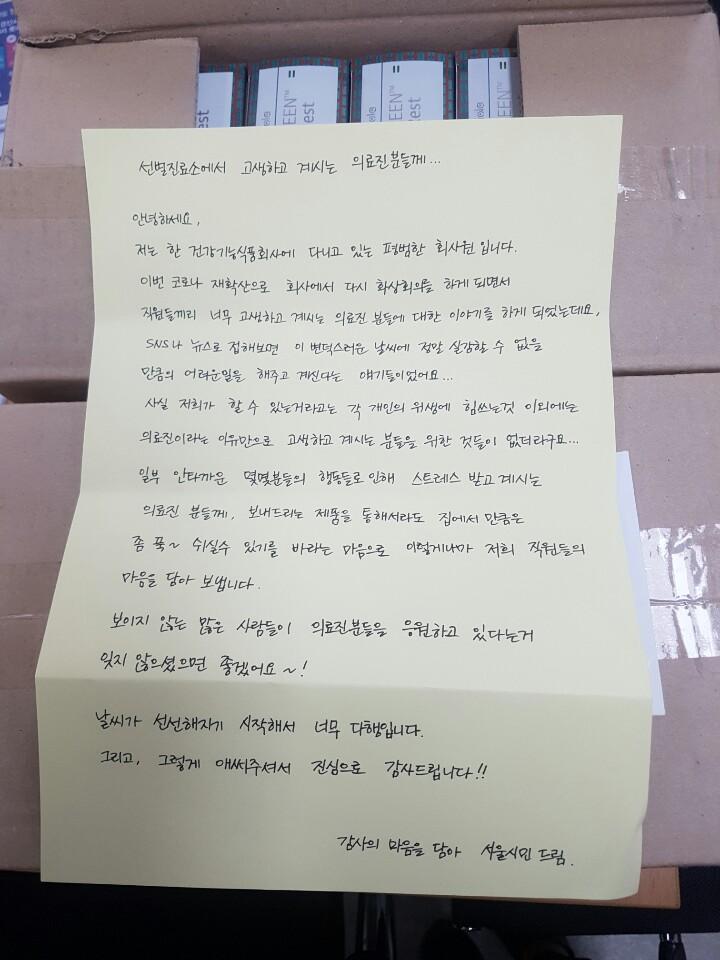 EEN™
est
EEN™
est
선별진료소에서 고생하고 계시는 의료진분들께...
안녕하세요,
저는 한 건강기능식품회사에 다니고 있는 평범한 회사원입니다.
이번 코로나 재확산으로 회사에서 다시 화상회의를 하게 되면서
직원들끼리 너무 고생하고 계시는 의료진 분들에 대한 이야기를 하게 되었는데요,
SNS나 뉴스로 접해보면 이 변덕스러운 날씨에 정말 실감할 수 없을
만큼의 어려운일을 해주고 계신다는 얘기들이었어요...
사실 저희가 할 수 있는거라고는 각 개인의 위생에 힘쓰는것 이외에는
의료진이라는 이유만으로 고생하고 계시는 분들을 위한 것들이 없더라구요...
일부 안타까운 몇몇분들의 행동들로 인해 스트레스 받고 계시는
의료진 분들께, 보내드리는 제품을 통해서라도 집에서 만큼은
좀 푹~ 쉬실수 있기를 바라는 마음으로 이렇게나마 저희 직원들의
마음을 담아 보냅니다.
보이지 않는 많은 사람들이 의료진분들을 응원하고 있다는거
잊지 않으셨으면 좋겠어요~!
날씨가 선선해지기 시작해서 너무 다행입니다.
그리고, 그렇게 애써주셔서 진심으로 감사드립니다!!
감사의 마음을 담아 서울시민 드림.